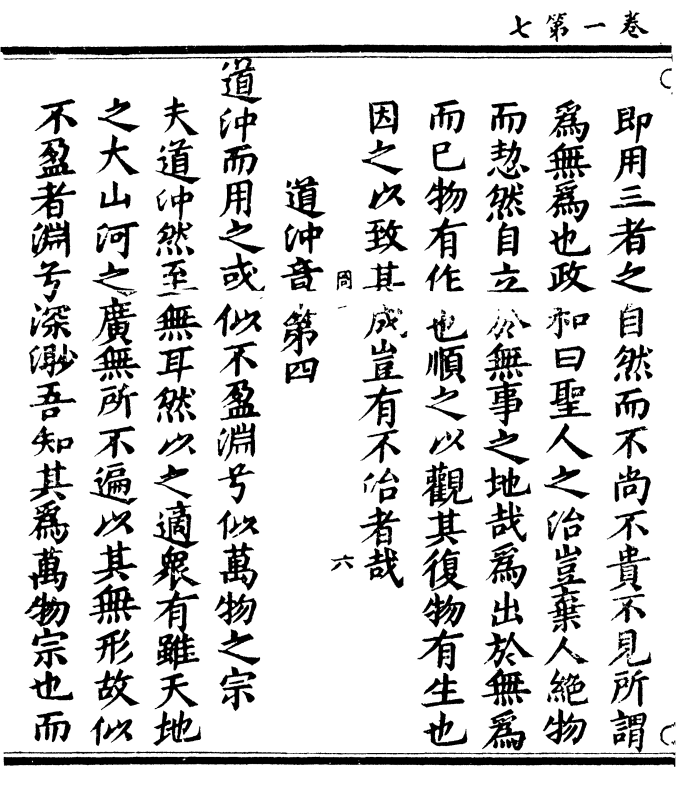 卷一第七
即用三者之自然而不尚不貴不見所謂
爲無爲也政和曰聖人之治豈棄人絶物
而恝然自立於無事之地哉爲出於無爲
而已物有作也順之以觀其復物有生也
因之以致其成豈有不治者哉
周一
六
道沖章第四
道沖而用之或似不盈淵兮似萬物之宗
夫道沖然至無耳然以之適衆有雖天地
之大山河之廣無所不遍以其無形故似
不盈者淵兮深渺吾知其爲萬物宗也而